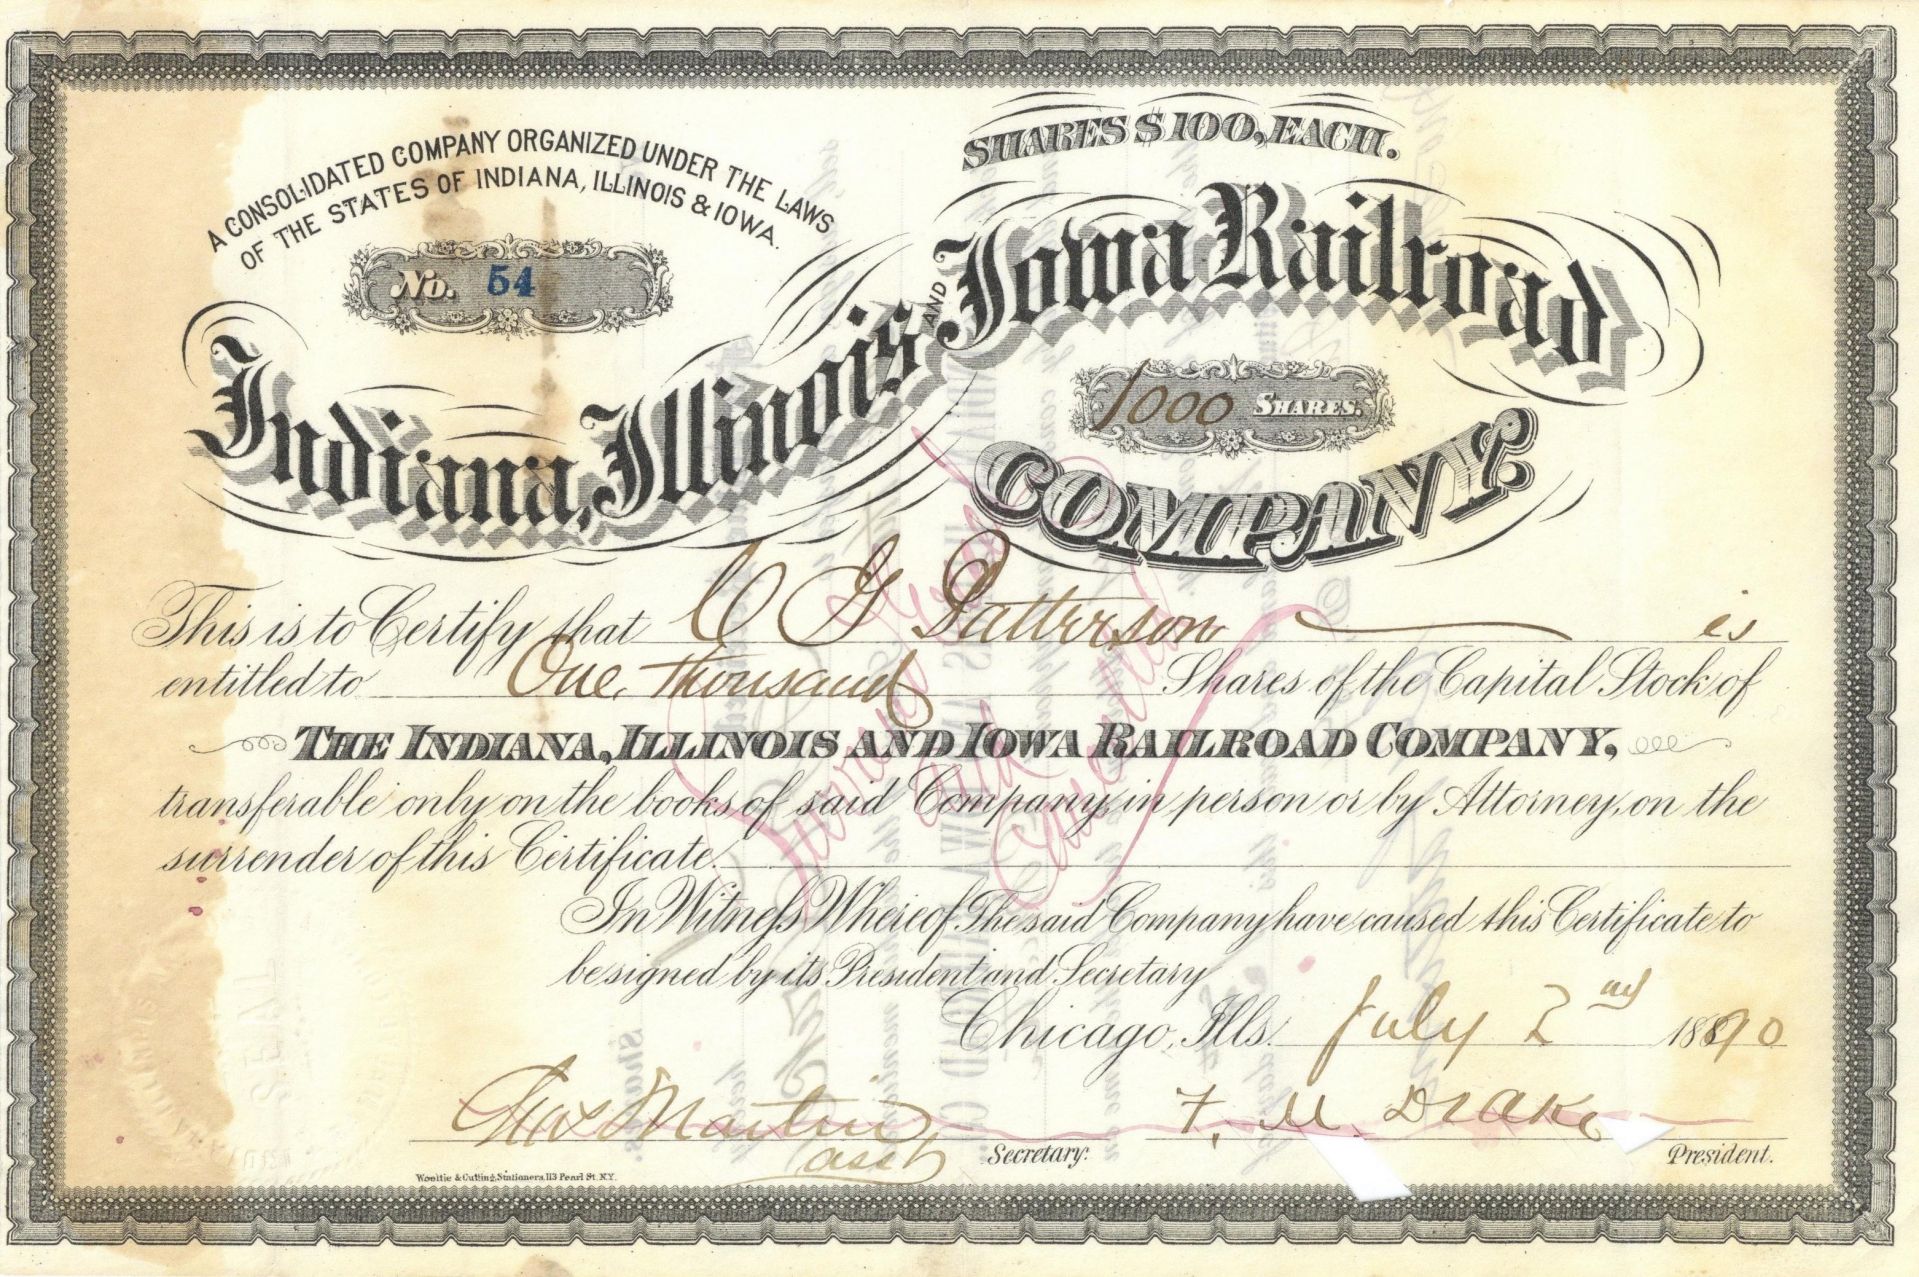 A CONSOLIDATED COMPANY ORGANIZED UNDER THE LAWS
OF THE STATES OF INDIANA, ILLINOIS & IOWA.
No. 54
SHARES $100, EACH.
Indiana, Illinois AND Iowa Railroad
1000 SHARES.
COMPANY.
This is to Certify that C G Patterson is
entitled to One thousand Shares of the Capital Stock of
THE INDIANA, ILLINOIS AND IOWA RAILROAD COMPANY,
transferable only on the books of said Company, in person or by Attorney, on the
surrender of this Certificate.
and
Cancelled
In Witness Whereof The said Company have caused this Certificate to
be signed by its President and Secretary
Chicago, Ills. July 2nd 1890
Martin F. M. Drake
Asst Secretary. President.
113 Pearl St. N.Y.